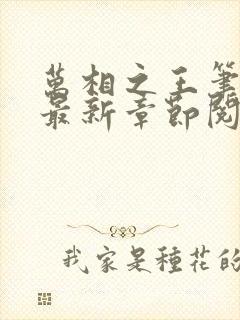 萬相之王筆
最新章節閱
我家是種花的